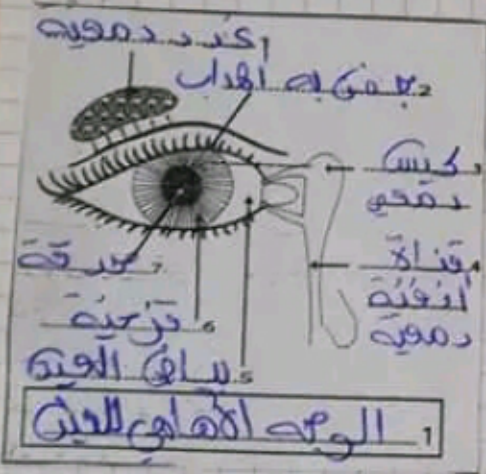 1 غدد دمعية
2 جفن به أهداب
3 كيس
دمعي
4 قناة
أنفية
دمعية
7 حدقة
6 قزحية
5 بياض العين
1 الوجه الأمامي للعين